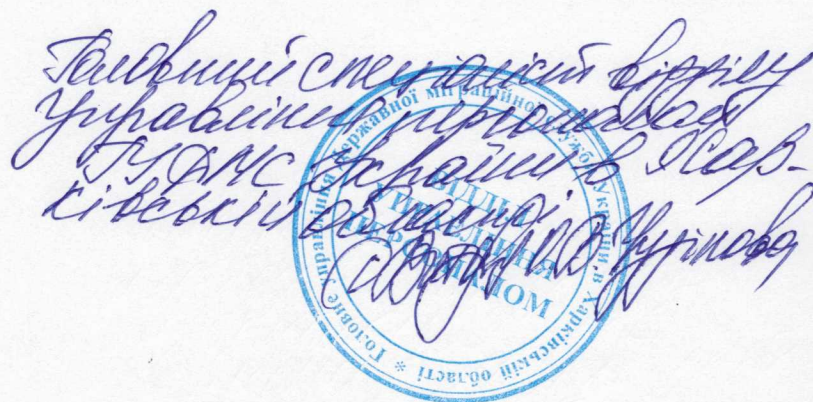 Головний спеціаліст відділу
управління персоналом
ГУДМС України в Хар-
ківській області
Головне управління Державної міграційної служби України в Харківській області *
ВІДДІЛ
УПРАВЛІННЯ
ПЕРСОНАЛОМ